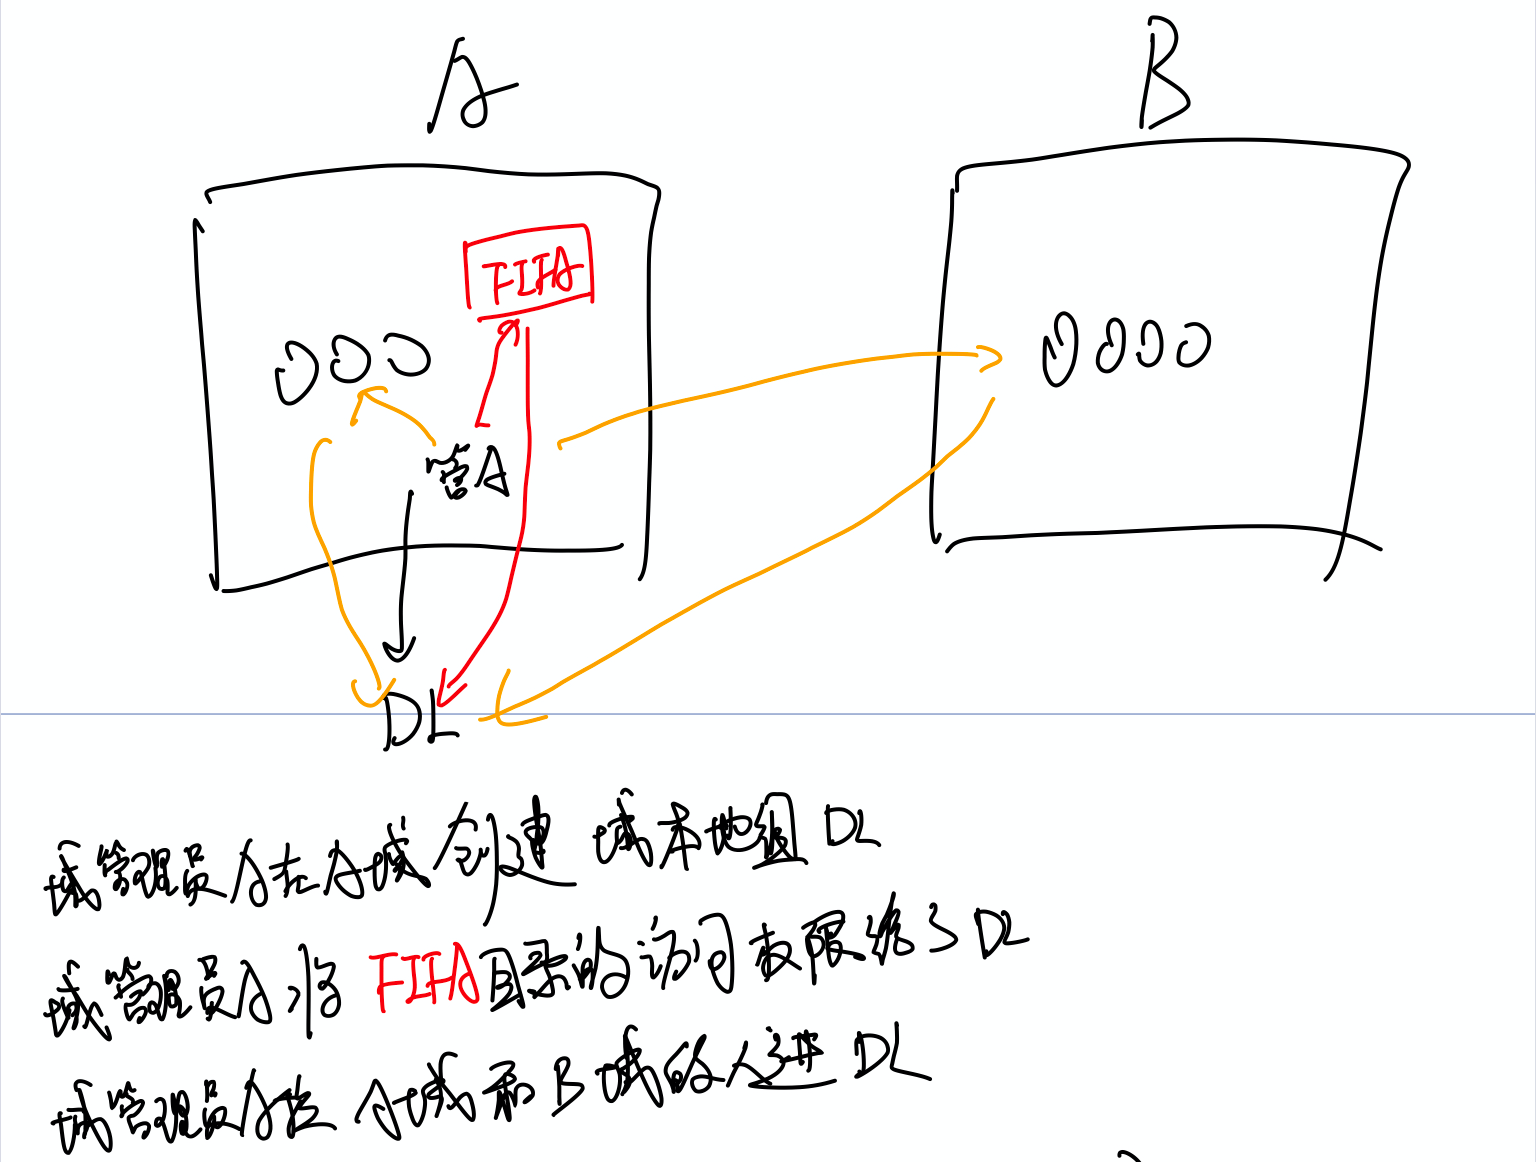 A
B
FIFA
管A
DL
域管理员A在A域创建 域本地组DL
域管理员A将 FIFA目录的访问权限给了DL
域管理员A拉 A域和B域的人进DL